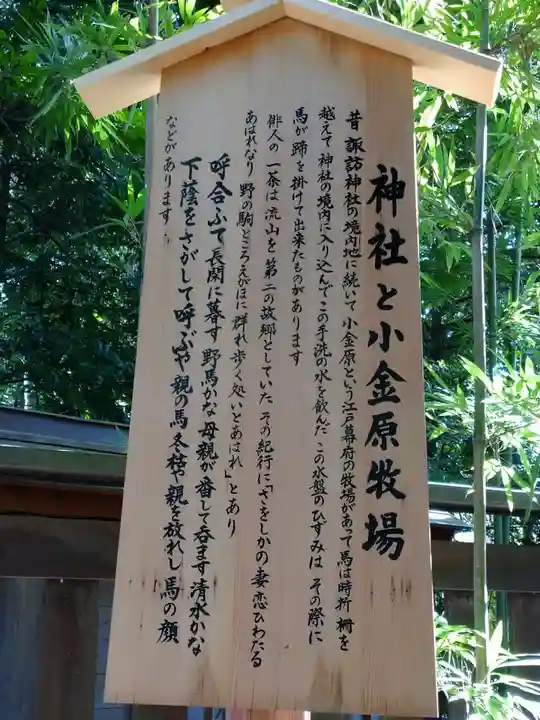 神社と小金原牧場
昔 諏訪神社の境内地に続いて 小金原という江戸幕府の牧場があって馬は時折 柵を
越えて 神社の境内に入り込んで この手洗の水を飲んだ この水盤のひずみは その際に
馬が 蹄を掛けて出来たものがあります
俳人の 一茶は 流山を 第二の故郷としていた その紀行に「さをしかの妻 恋ひわたる
あはれなり 野の駒 ところえがほに 群れ歩く 処いとあはれ」とあり
呼合ふて 長閑に暮す 野馬かな 母親が 番して呑ます 清水かな
下蔭を さがして呼ぶや 親の馬 冬枯や 親を放れし 馬の顔
などがあります